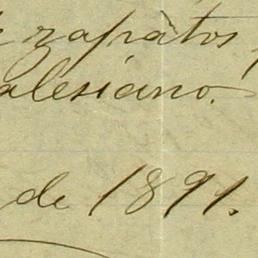 zapatos
alesiano.
de 1891.